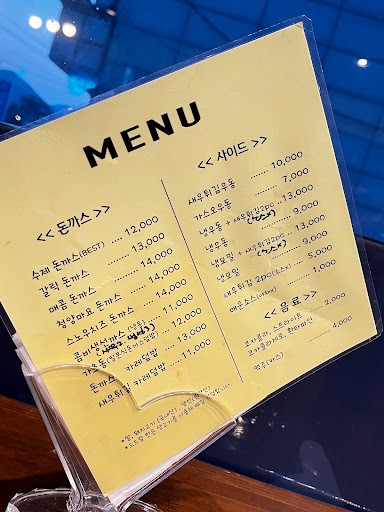 MENU
<< 돈까스 >>
수제 돈까스(BEST) .... 12,000
갈릭 돈까스 ...... 13,000
매콤 돈까스 ...... 14,000
청양마요 돈까스 ..... 14,000
스노우치즈 돈까스 ...... 14,000
콤비생선까스 ..... 11,000
가츠동(일본식돈까스덮밥) ... 12,000
돈까스 카레덮밥 ... 13,000
새우튀김 카레덮밥 ... 11,000
<< 사이드 >>
새우튀김우동 ...... 10,000
가스오우동 ...... 7,000
냉우동 + 새우튀김2pc ...13,000
냉우동 ...... 9,000
냉모밀 + 새우튀김2pc ...13,000
냉모밀 ...... 9,000
새우튀김 2pc(소스x) ..... 5,000
매운소스(아이x) ...... 1,000
<< 음료 >>
코카콜라, 스프라이트 ..... 2,000
코카콜라제로, 환타파인
맥주(카스) ..... 4,000